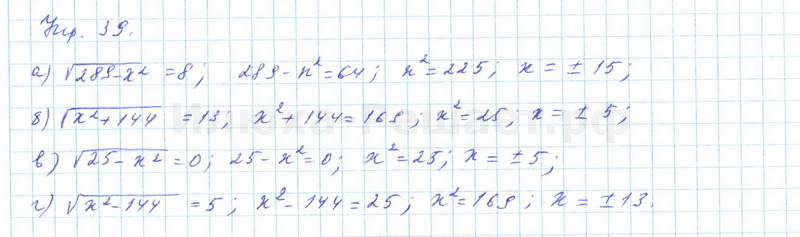 Упр. 39.
а) √289-x² = 8; 289 - x² = 64; x² = 225; x = ± 15;
б) √x² + 144 = 13; x² + 144 = 169; x² = 25; x = ± 5;
в) √25 - x² = 0; 25 - x² = 0; x² = 25; x = ± 5;
г) √x² - 144 = 5; x² - 144 = 25; x² = 169; x = ± 13.